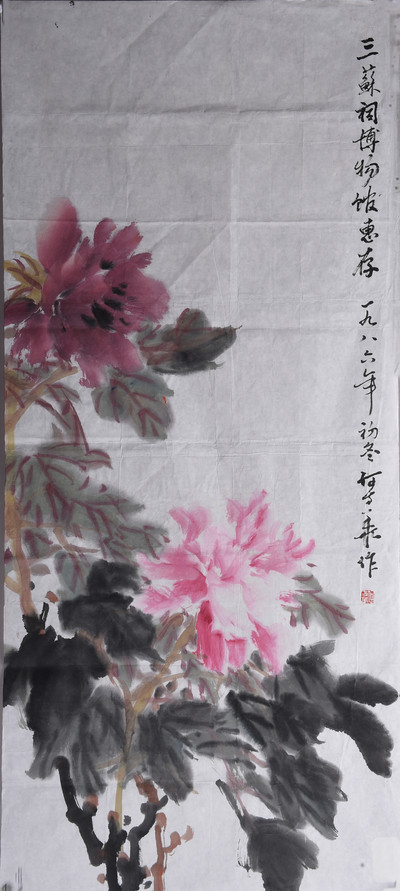 三蘇祠博物馆惠存 一九八六年初冬 何
作